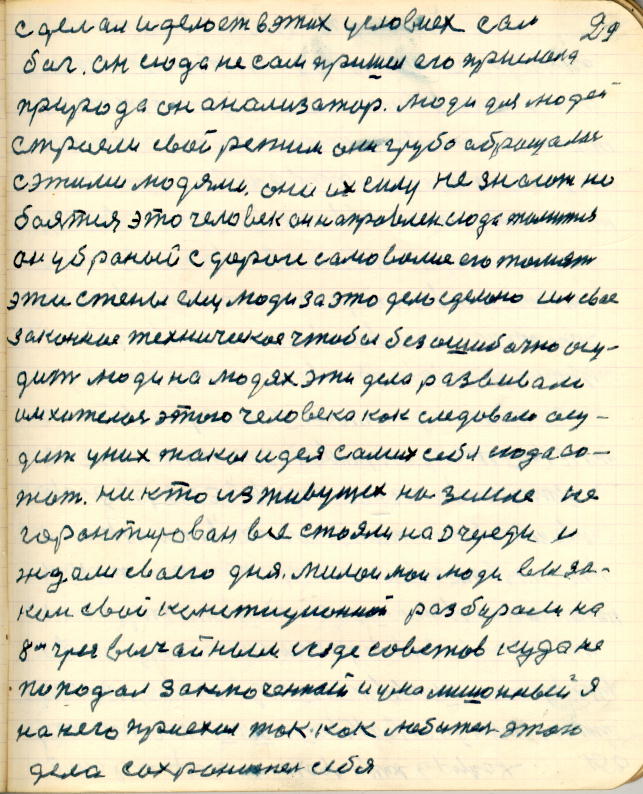 сделал и делоет в этих условиех сам 29
бог. он сюда не сам пришел его прислала
природа он анализатор. люди для людей
строели свой режим они грубо обращалися
с этими людями. они их силу не знают но
боятия это человек он направлен сюда
он убраный с дороге самоволие его
эти стены ему люди за это дело сделоно им свое
законное техническое чтобы безошибочно осу-
дит люди на людях эти дела развивали
им хотелося этого человека как следовало осу-
дит у них такая идея самих себя сюда со-
жат. никто из живущех на земле не
горонтирован все стояли на очереди и
ждали своего дня. милои мои люди вы за-
кон свой конституционной разбирали на
8м чрез вычайным сезде советов куда не
попадал заключенный и умалишонный я
на него приехал так как любител этого
дела сохронител себя